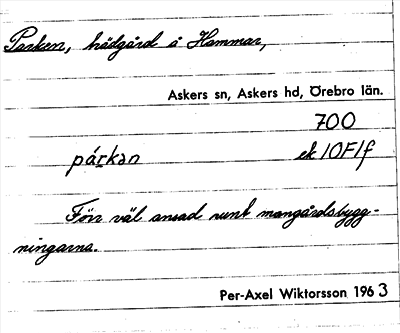 Parken, trädgård å Hammar,
Askers sn, Askers hd, Örebro län.
700
párkan ek 10F1f
Förr väl ansad runt mangårdsbygg-
ningarna.
Per-Axel Wiktorsson 1963